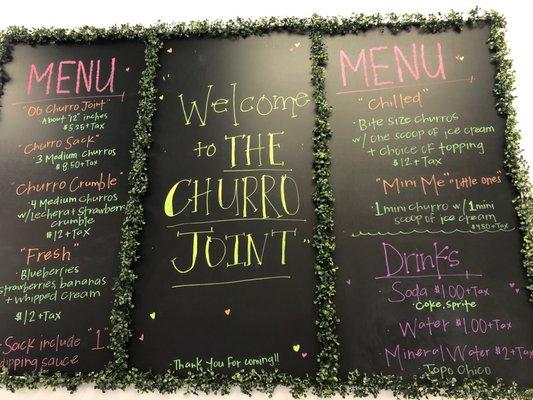 MENU
"OG Churro Joint"
About "12" inches
$5.25+Tax
"Churro Sack"
3 Medium Churros
$8.50+Tax
"Churro Crumble"
4 Medium Churros
w/Lechera+strawberry
crumble
$12+Tax
"Fresh"
Blueberries
strawberries, bananas
+ whipped cream
$12+Tax
Sack include "1"
dipping sauce
Welcome
to THE
CHURRO
JOINT
Thank you For coming!!
MENU
"Chilled"
Bite Size churros
w/one scoop of ice cream
+ choice of topping
$12+Tax
"Mini Me" "little ones"
1 mini churro w/1 mini
scoop of ice cream $4.50+Tax
Drinks
Soda $1.00+Tax
Coke, Sprite
Water $1.00+Tax
Mineral Water $2+Tax
Topo Chico